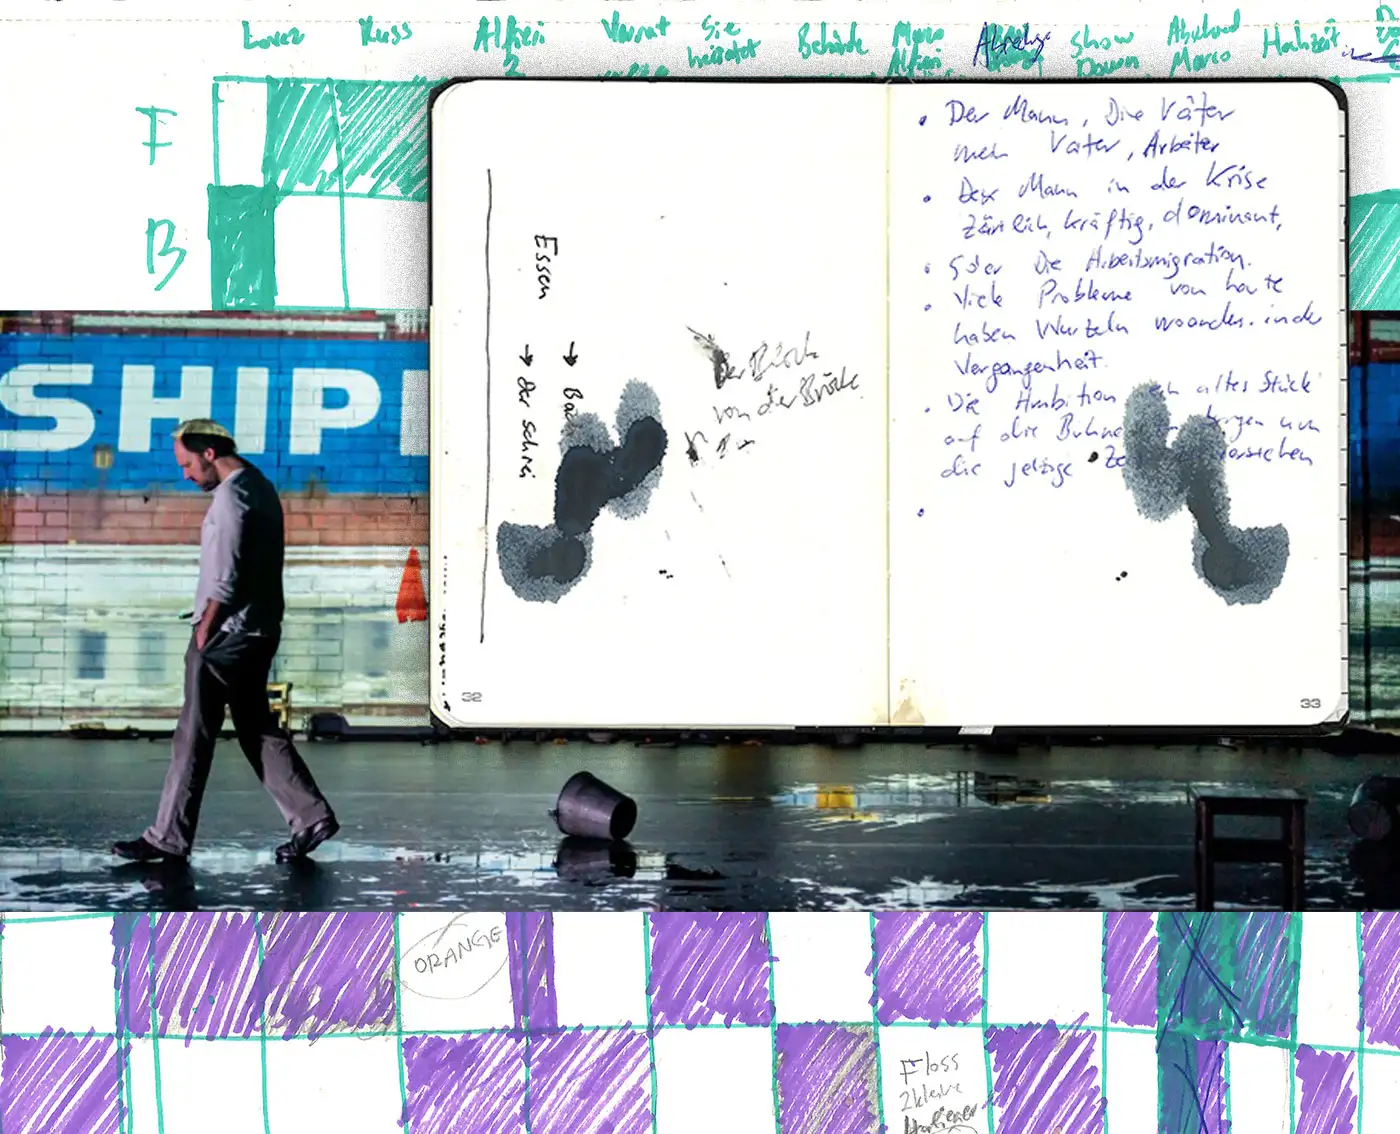 Kuss
Alfieri
2
Verrat
Sie
heiratet
Behörde
Marco
Alfieri
Show
Down
Abschied
Marco
Hochzeit
F
B
SHIP
Essen
→
→ Der Schrei
Der Blick
von der Brücke
32
• Der Mann, Die Väter
mein Vater, Arbeiter
• Der Mann in der Krise
Zärtlich, kräftig, dominant,
• 50er Die Arbeitsmigration.
• Viele Probleme von heute
haben Wurzeln woanders. in der
Vergangenheit.
• Die Ambition ein altes Stück
auf die Bühne
die jetzige
33
ORANGE
Floss
2 kleine
Italiener